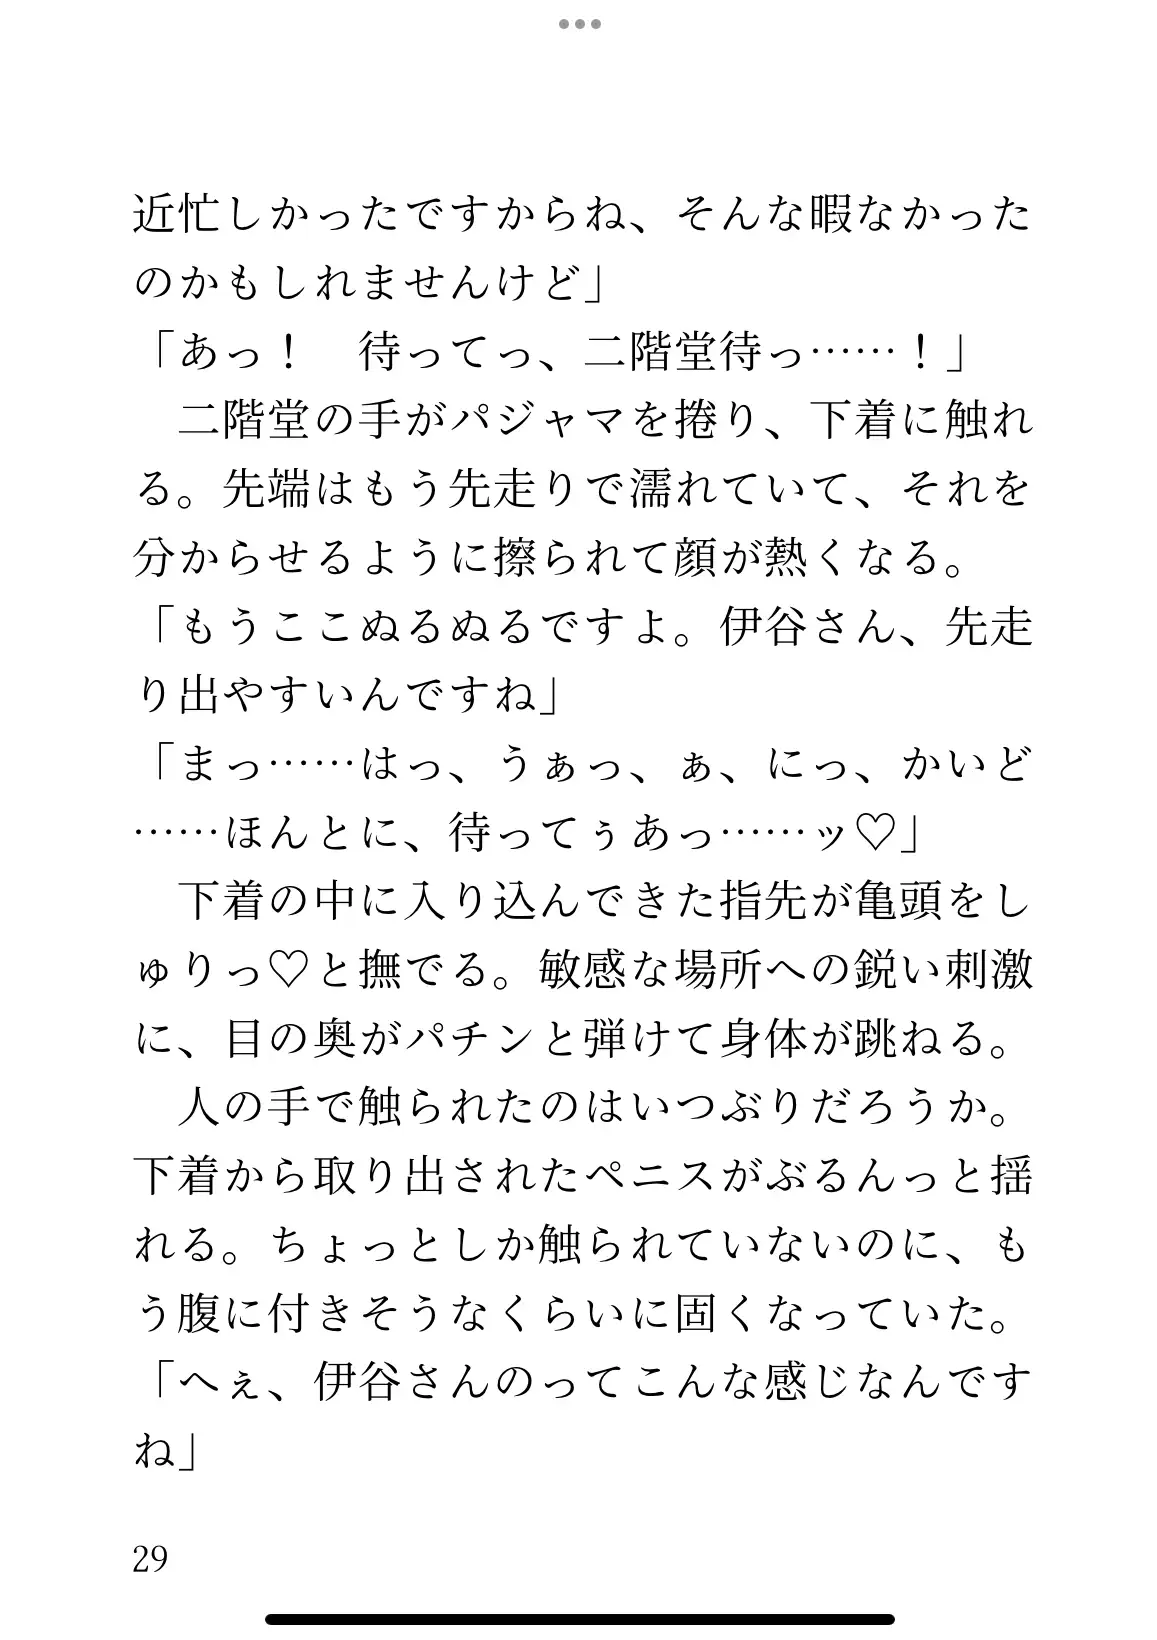 近忙しかったですからね、そんな暇なかった
のかもしれませんけど」
「あっ！　待ってっ、二階堂待っ……！」
　二階堂の手がパジャマを捲り、下着に触れ
る。先端はもう先走りで濡れていて、それを
分からせるように擦られて顔が熱くなる。
「もうここぬるぬるですよ。伊谷さん、先走
り出やすいんですね」
「まっ……はっ、うぁっ、ぁ、にっ、かいど
……ほんとに、待ってぅあっ……ッ♡」
　下着の中に入り込んできた指先が亀頭をし
ゅりっ♡と撫でる。敏感な場所への鋭い刺激
に、目の奥がパチンと弾けて身体が跳ねる。
　人の手で触られたのはいつぶりだろうか。
下着から取り出されたペニスがぶるんっと揺
れる。ちょっとしか触られていないのに、も
う腹に付きそうなくらいに固くなっていた。
「へぇ、伊谷さんのってこんな感じなんです
ね」
29